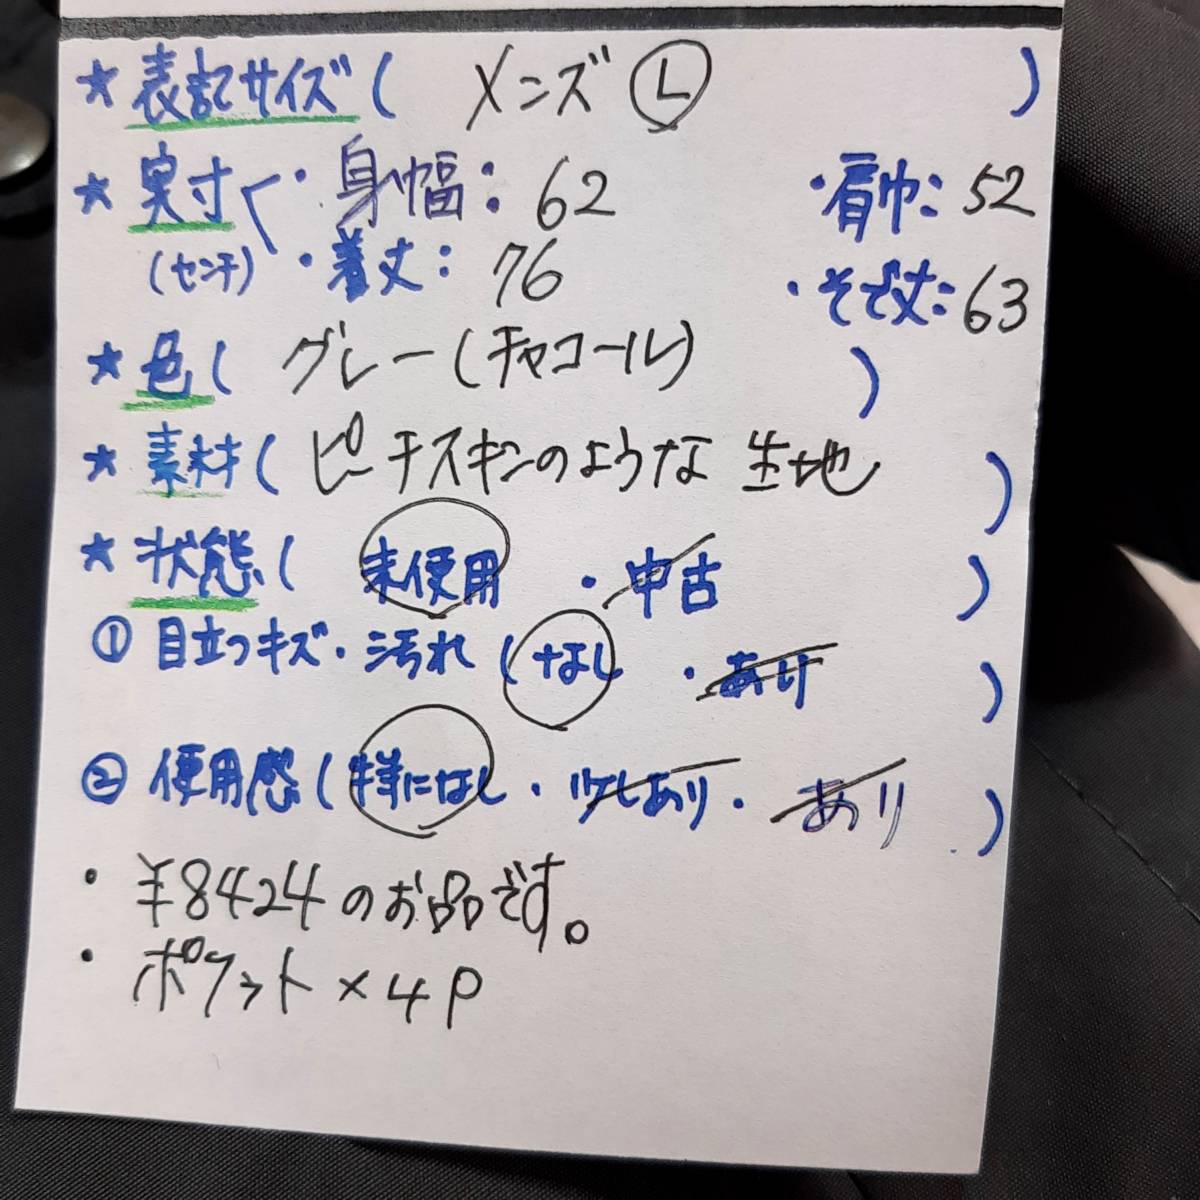 ★表記サイズ( メンズ Ⓛ )
★実寸 ・身幅: 62 ・肩巾: 52
(センチ) ・着丈: 76 ・そで丈: 63
★色( グレー(チャコール) )
★素材( ピーチスキンのような 生地 )
★状態( 未使用 ・ 中古 )
① 目立つキズ・汚れ ( なし ・ あり )
② 使用感 ( 特になし ・ 少しあり ・ あり )
・¥8424のお品です。
・ポケット×4P